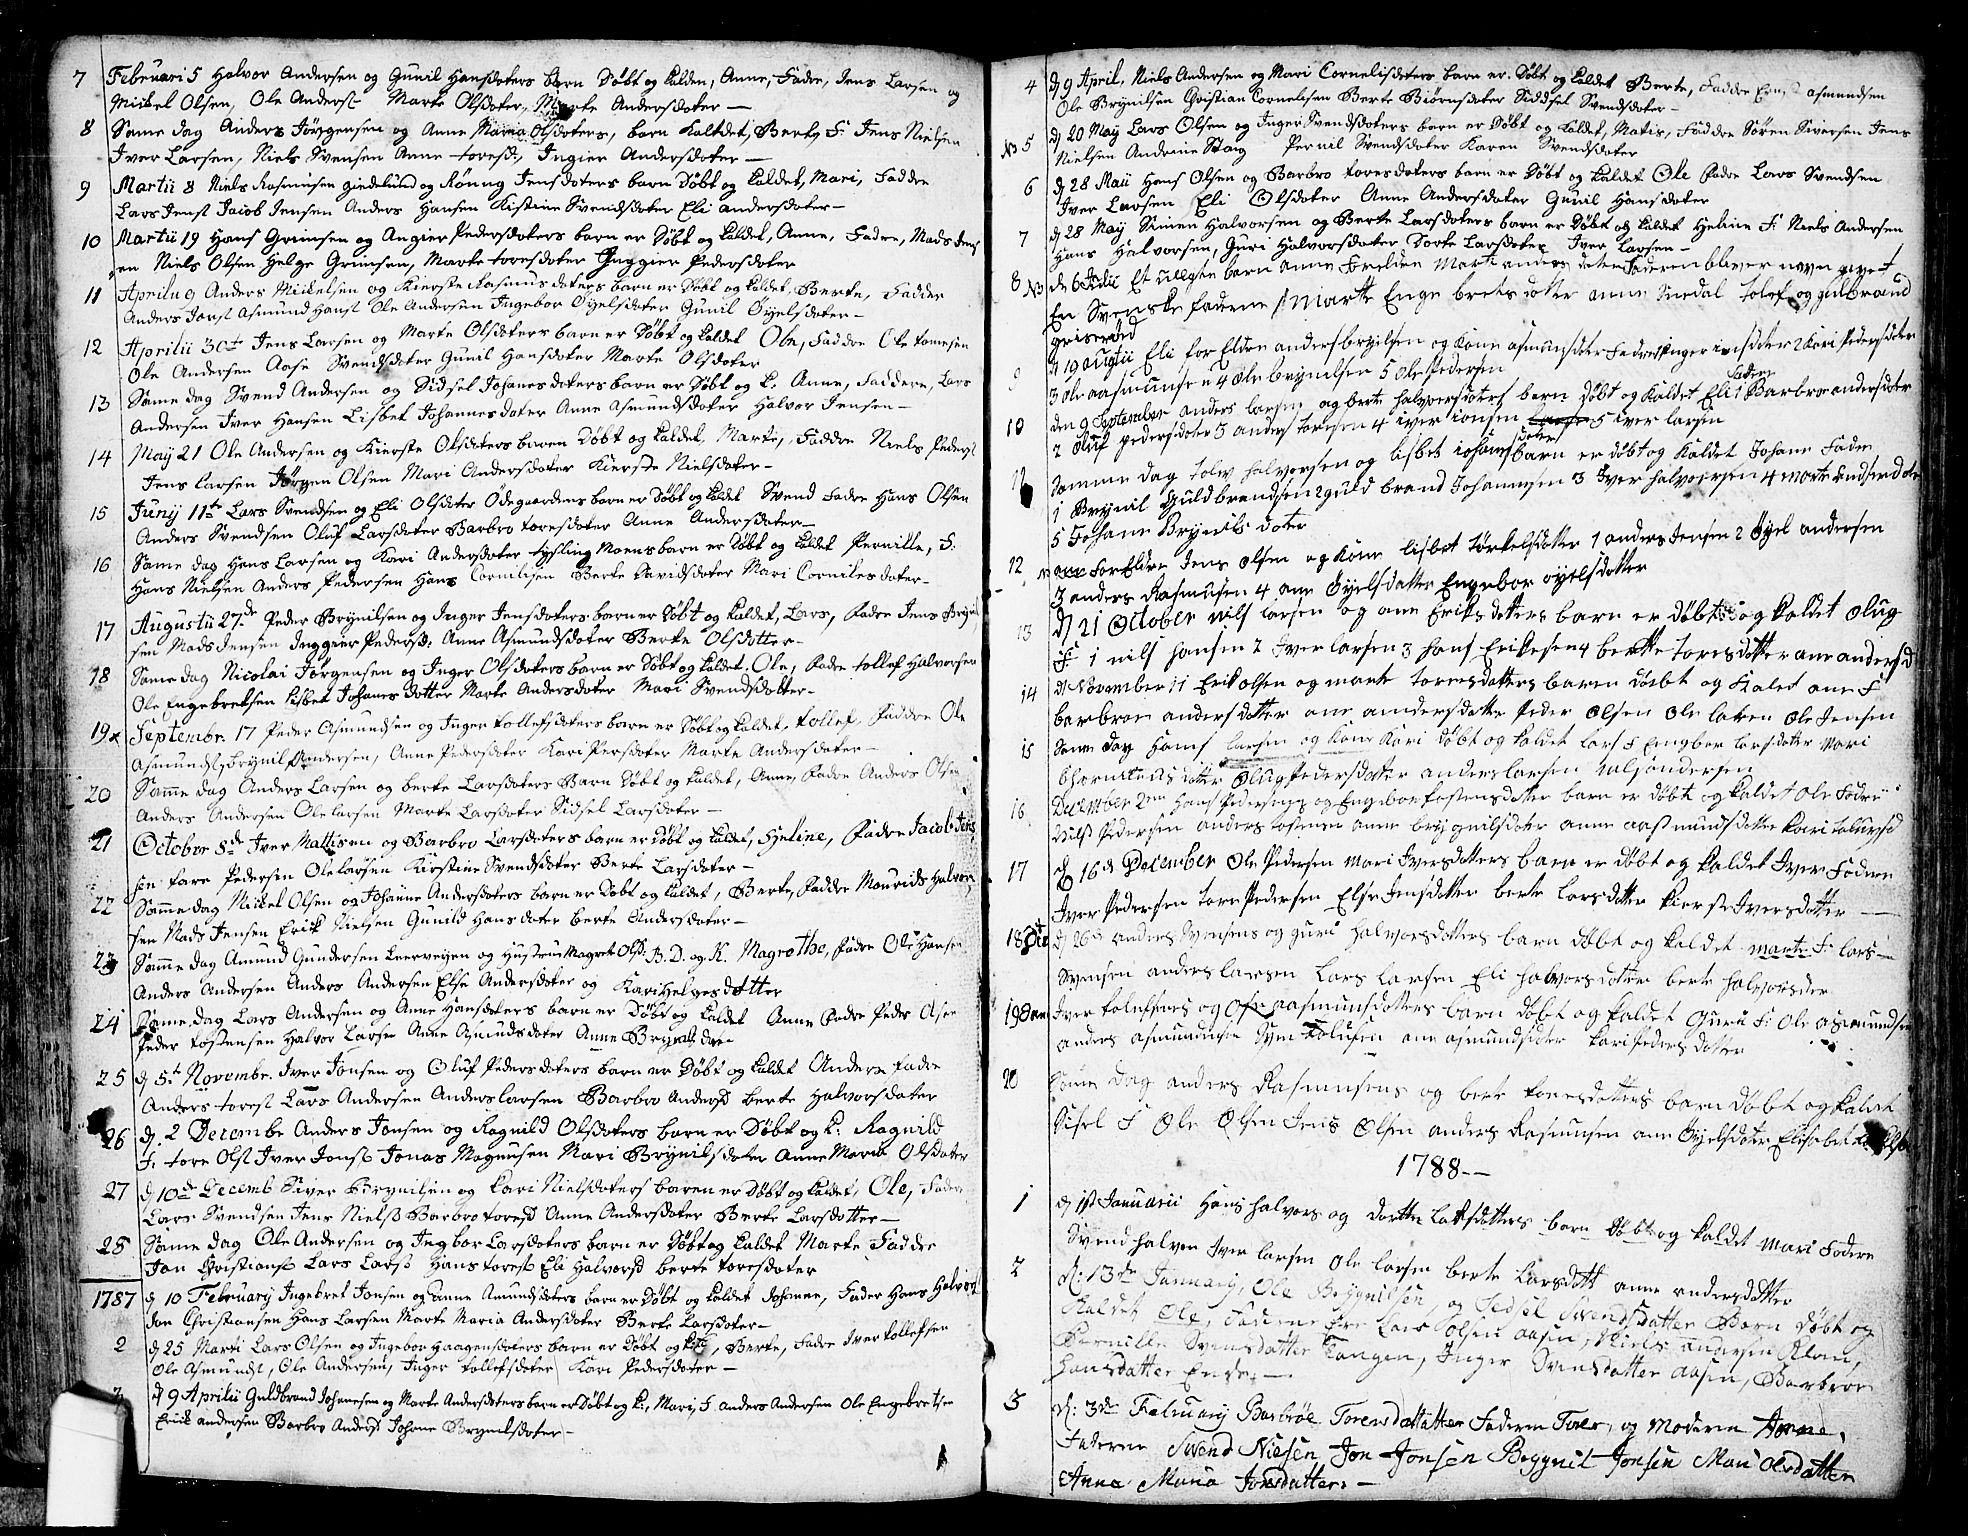 7 Februarii 5 Halvor Andersen og Gunil Hansdaters barn Døbt og kalden, Anne, Fadre, Jens Larsen og
Mickel Olsen, Ole Anders: Marte Olsdater, Marte Andersdater —
8 Same dag Anders Jörgensen og Anne Maria Olsdaters, barn Kaldet, Berte, F: Jens Nielsen
Iver Larsen, Niels Svensen Anne toresd:, Ingier Andersdater —
9 Martii 8 Niels Rasmusen giedelund og Rönnug Jensdaters barn Døbt og kaldet, Mari, Faddre
Lars Jenst Jacob Jensen Anders Hansen Kistine Svendsdater Eli Andersdater —
10 Martii 19 Hans Grimsen og Angier Pedersdaters barn er Døbt og kaldet, Anne, Fadre, Mads Jens
en Niels Olsen Helge Grimsen, Marte toresdater Inggier Pedersdater
11 Aprilii 9 Anders Mickelsen og Kierste Rasmusdaters barn er Døbt og kaldet Berte, Faddre
Anders Jonst Asmund Hanst Ole Andersen Ingebor Öyelsdater Gunil Öyelsdater —
12 Aprilii 30te Jens Larsen og Marte Olsdaters barn er Døbt og kaldet Ole, Faddre Ole tomesen
Ole Andersen Aase Svendsdater Gunil Hansdater Marte Olsdater
13 Same dag Svend Andersen og Sidsel Johanesdaters barn er Døbt og k. Anne, Faddere, Lars
Andersen Iver Hansen Lisbet Johannesdater Anne Asmundsdater Halvor Jensen —
14 May 21 Ole Andersen og Kierste Olsdaters baren Døbt og kaldet, Marte, Faddre Niels Peders
Jens Larsen Jörgen Olsen Mari Andersdater Kierste Nielsdater —
15 Juny 11te Lars Svendsen og Eli Olsdater Ödegaardens barn er Døbt og kaldet Svend Fadre Hans Olsen
Anders Svendsen Oluf Larsdater Barbro toresdater Anne Andersdater —
16 Same dag Hans Larsen og Kari Andersdater tysling Moens barn er Døbt og kaldet Pernille, F:
Hans Nielsen Anders Pedersen Hans Cornilisen Berte Davidsdater Mari Cornilesdater —
17 Augustii 27de Peder Brÿnilsen og Inger Jensdaters barn er Døbt og kaldet, Lars, Fadre Jens Brÿnil
sen Mads Jensen Inggier Pedersd: Anne Asmundsdater Berte Olsdotter —
18 Same dag Nicolai Jörgensen og Inger Olsdaters barn er Døbt og kaldet, Ole, Fadre tollef Halvorsen
Ole Engebretsen Lisbet Johansdotter Marte Andersdater Mari Svendsdotter —
19 Septembr. 17 Peder Asmundsen og Inger tollefsdaters barn er Døbt og kaldet, tollef, Faddre Ole
Asmunds, Brÿnil Andersen, Anne Pedersdater Kari Persdater Marte Andersdater —
20 Same dag Anders Larsen og berte Larsdaters Barn Døbt og kaldet, Anne, Fadre Anders Olsen
Anders Andersen Ole larsen Marte Larsdater Sidsel Larsdater —
21 October 8de Iver Mattisen og Barbro Larsdaters barn er Døbt og kaldet, Hyeline, Fadre Jacob Jens
sen tore Pedersen Ole larsen Kirstine Svendsdater Berte Larsdater —
22 Same dag Mickel Olsen og Johanne Andersdaters barn er Døbt og kaldet, Berte, Faddre Mourids Halvor
sen Mads Jensen Erick Nielsen Gunild Hansdater berte Andersdater —
23 Same dag Amund Gundersen Leerveyen og Hustrue Magret Olsd: B. D. og K. Magrethe, Fadre Ole Hansen
Anders Andersen Anders Andersen Else Andersdater og Kari Helgesdatter
24 Same dag Lars Andersen og Anne Hansdaters barn er Døbt og kaldet Anne Fadre Peder Olsen
Peder tostensen Halvor Larsen Anne Asmundsdater Anne Brynilsdater
25 d 5te Novembr. Iver Jonsen og Oluf Pedersdaters barn er Døbt og kaldet Anders Fadre
Anders torest Lars Andersen Anders larsen Barbro Andersd berte Halvorsdater
26 d. 2 Decembe Anders Jonsen og Ragnild Olsdaters barn er Døbt og k: Ragnild
F. tore Olst Iver Jonst Jonas Magnusen Mari Brÿnilsdater Anne Maria Olsdater
27 d 10de Decemb Siver Brynilsen og kari Nielsdaters baren er Døbt og kaldet, Ole, Fadre
Lars Svendsen Jens Nielst Barbro toresd Anne Andersdater Berte Larsdotter —
28 Same dag Ole Andersen og Ingbor Larsdaters barn er Døbt og kaldet Marte Faddre
Jon Christianst Lars Larst Hans torest Eli Halvorsd berte toresdater
1787 d 10 February Ingebret Jonsen og Anne Amundsdaters barn er Døbt og kaldet Johanne, Fader Hans Halvorst
Jon Christiansen Hans Larsen Marte Maria Andersdater Berte Larsdater —
2 d 25 Marti Lars Olsen og Ingebor Haagensdaters barn er Døbt og kal, Berte, Fadre Iver tollefsen
Ole Asmundst, Ole Andersen, Inger tollefsdater Kari Pedersdater —
3 d 9 Aprilii Guldbrand Johanesen og Marte Andersdaters barn er Døbt og k., Mari, F. anders Andersen Ole Engebretsen
Erick andersen Barbro Andersd Johane Brynilsdater —
4 d 9 April, Niels Andersen og Mari Cornelisdeters barn er Døbt og kaldet Berte, Faddre Asmundsen
Ole Brÿnilsen Christian Cornelisen Berte Biörnsdater Sidsel Svendsdater —
N3 5 d 20 May Lars Olsen og Inger Svendsdaters barn er Døbt og kaldet, Matis, Faddre Sören Siversen Jens
Nielsen Andreine Stang Pernil Svendsdater Karen Svendsdater
6 d 28 Maii Hans Olsen og Barbro toresdaters barn er Døbt og kaldet Ole Fadre Lars Svendsen
Iver Larsen Eli Olsdater Anne Andersdater Gunil Hansdater
7 d 28 May Simen Halvorsen og Berte Larsdaters barn er Døbt og kaldet Heline F. Niels Andersen
Hans Halvorsen, Guri Halvorsdater Dorte Larsdater Iver Larsen —
8 N3 de 6 Julii Et uegte barn anne Forelden Marte anders dater Faderen blever navn givet
En Svenske Faderne Martte Engebrets dotter anne Snedal tolef og gulbrand
grisenrød
9 d 19 augtii Eli for Elden anders brynilsen og Kone asmunsdater Fadre Inger iensdater 2 Kari Pedersdater
3 ole aasmunsen 4 ole brynilsen 5 ole Pedersen
10 den 9 September anders larsen og brete halvorsdoters barn døbt og Kaldet Eli Fadere 1 Barbroe andersdater
2 oluf pedersdater 3 anders toresen 4 iver ionsen 5 iver larsen
11 Samme dag tolev halvorsen og lisbet iohans dotters barn er døbt og Kaldet Johane Fadre
1 Brynil guldbrandsen 2 guldbrand Johannesen 3 Iver halvorsen 4 marte
5 Johane Brynils doter
12 ForEldre Jens olsen og Kone lisbet törkelsdatter 1 anders Jensen 2 Öyel andersen
3 anders Rasmusen 4 ane Öyelsdatter Engebor öyelsdotter
13 d 21 October nils larsen og ane Eriks dotters barn er døbt og kaldet olug
F 1 nils hansen 2 Iver larsen 3 hans Eriksen 4 berte toresdatter ane andersd
14 d November 11 Erik olsen og marte toresdatters baren døbt og Kalet ane F
barbroe andersdatter ane anndersdatter Peder olsen ole laren ole Jensen
15 Same dag Hans larsen og kone Kari døbt og kaldet lars F Engbor larsdatter Mari
Chornelius dater olug Pedersdatter anders larsen nils andersen
16 December 2en Hans Pedersens og Engebor tostensdatter barn er døbt og kaldet ole Fadre
Nils Pedersen anders tostensen anne brygnilsdater anne aasmundsdatter kari
17 d 16de December Ole Pedersen Mari Iversdatters barn er døbt og kaldet Iver Fadere
Iver Pedersen tore Pedersen Else Jensdatter berte larsdatter kierste Iversdatter —
18 d 26de anders Svensens og guri halvorsdatters barn døbt og kaldet marte F: lars
Svensen anders larsen Lars larsen Eli halvorsdatter berte halvorsder
19 Iver tolefsens og aasmunsdatters barn døbt og kaldet Guru F: Ole asmundsen
anders asmundsen Sven ane asmundsdater kari Peders datter
20 Same dag anders Rasmusens og berte toresdatters barn døbt og kaldet
Sisel F Ole Olsen Jens Olsen anders Rasmunsen ane Öyelsdater Elisabet
1788 —
1 d 1st Januarii Hans halvors og Dortte larsdatters barn døbt og kaldet Mari Fadere
Svend halvor Iver larsen ole larsen berte larsdatt anne andersdatter
2 d: 13de January, Ole Brÿgnilsen, og Sedsel Svendsdatter Barn døbt og
Kaldet Ole, Faderne Ere Lars olsen aasen, Niels andersen Klom,
Pernille Svensdatter Tangen, Inger Svensdatter aasen, Barbroe
Hansdatter Ende. —
3 d: 3de February Barbröe Toresdattatter Faderen Tore, og Moderen Anne,
Faderne Svend Nielsen Jon Jonsen Brÿgnil Jonsen Mari olesdatter
Anne Maria Jonsdatter. —